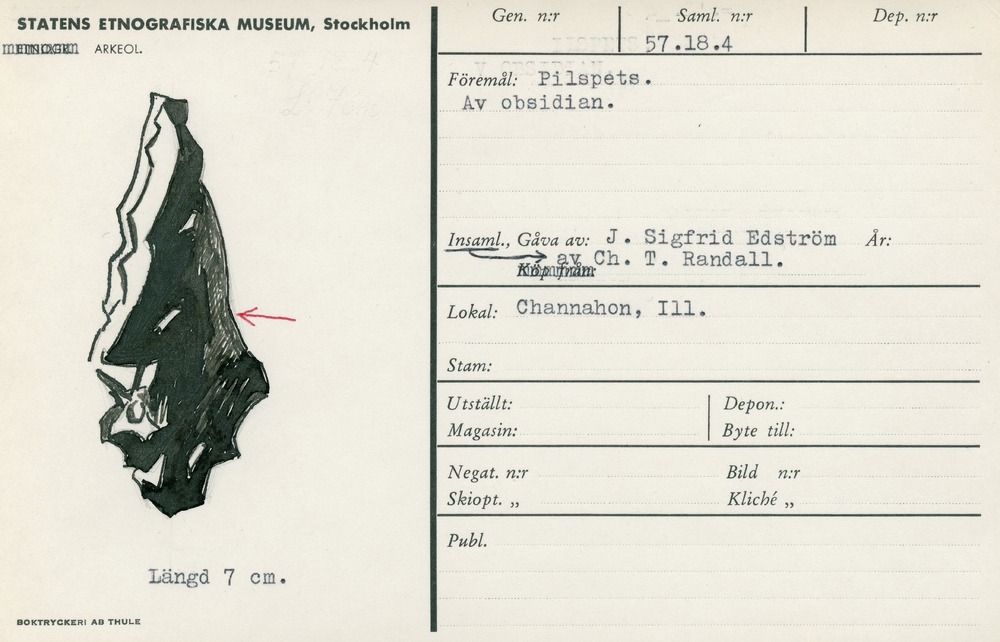 STATENS ETNOGRAFISKA MUSEUM, Stockholm
ARKEOL.
Längd 7 cm.
BOKTRYCKERI AB THULE
Gen. n:r
Saml. n:r
Dep. n:r
57.18.4
Föremål: Pilspets.
Av obsidian.
Insaml., Gåva av: J. Sigfrid Edström År:
av Ch. T. Randall.
Köp från:
Lokal: Channahon, Ill.
Stam:
Utställt:
Depon.:
Magasin:
Byte till:
Negat. n:r
Bild n:r
Skiopt. „
Kliché „
Publ.